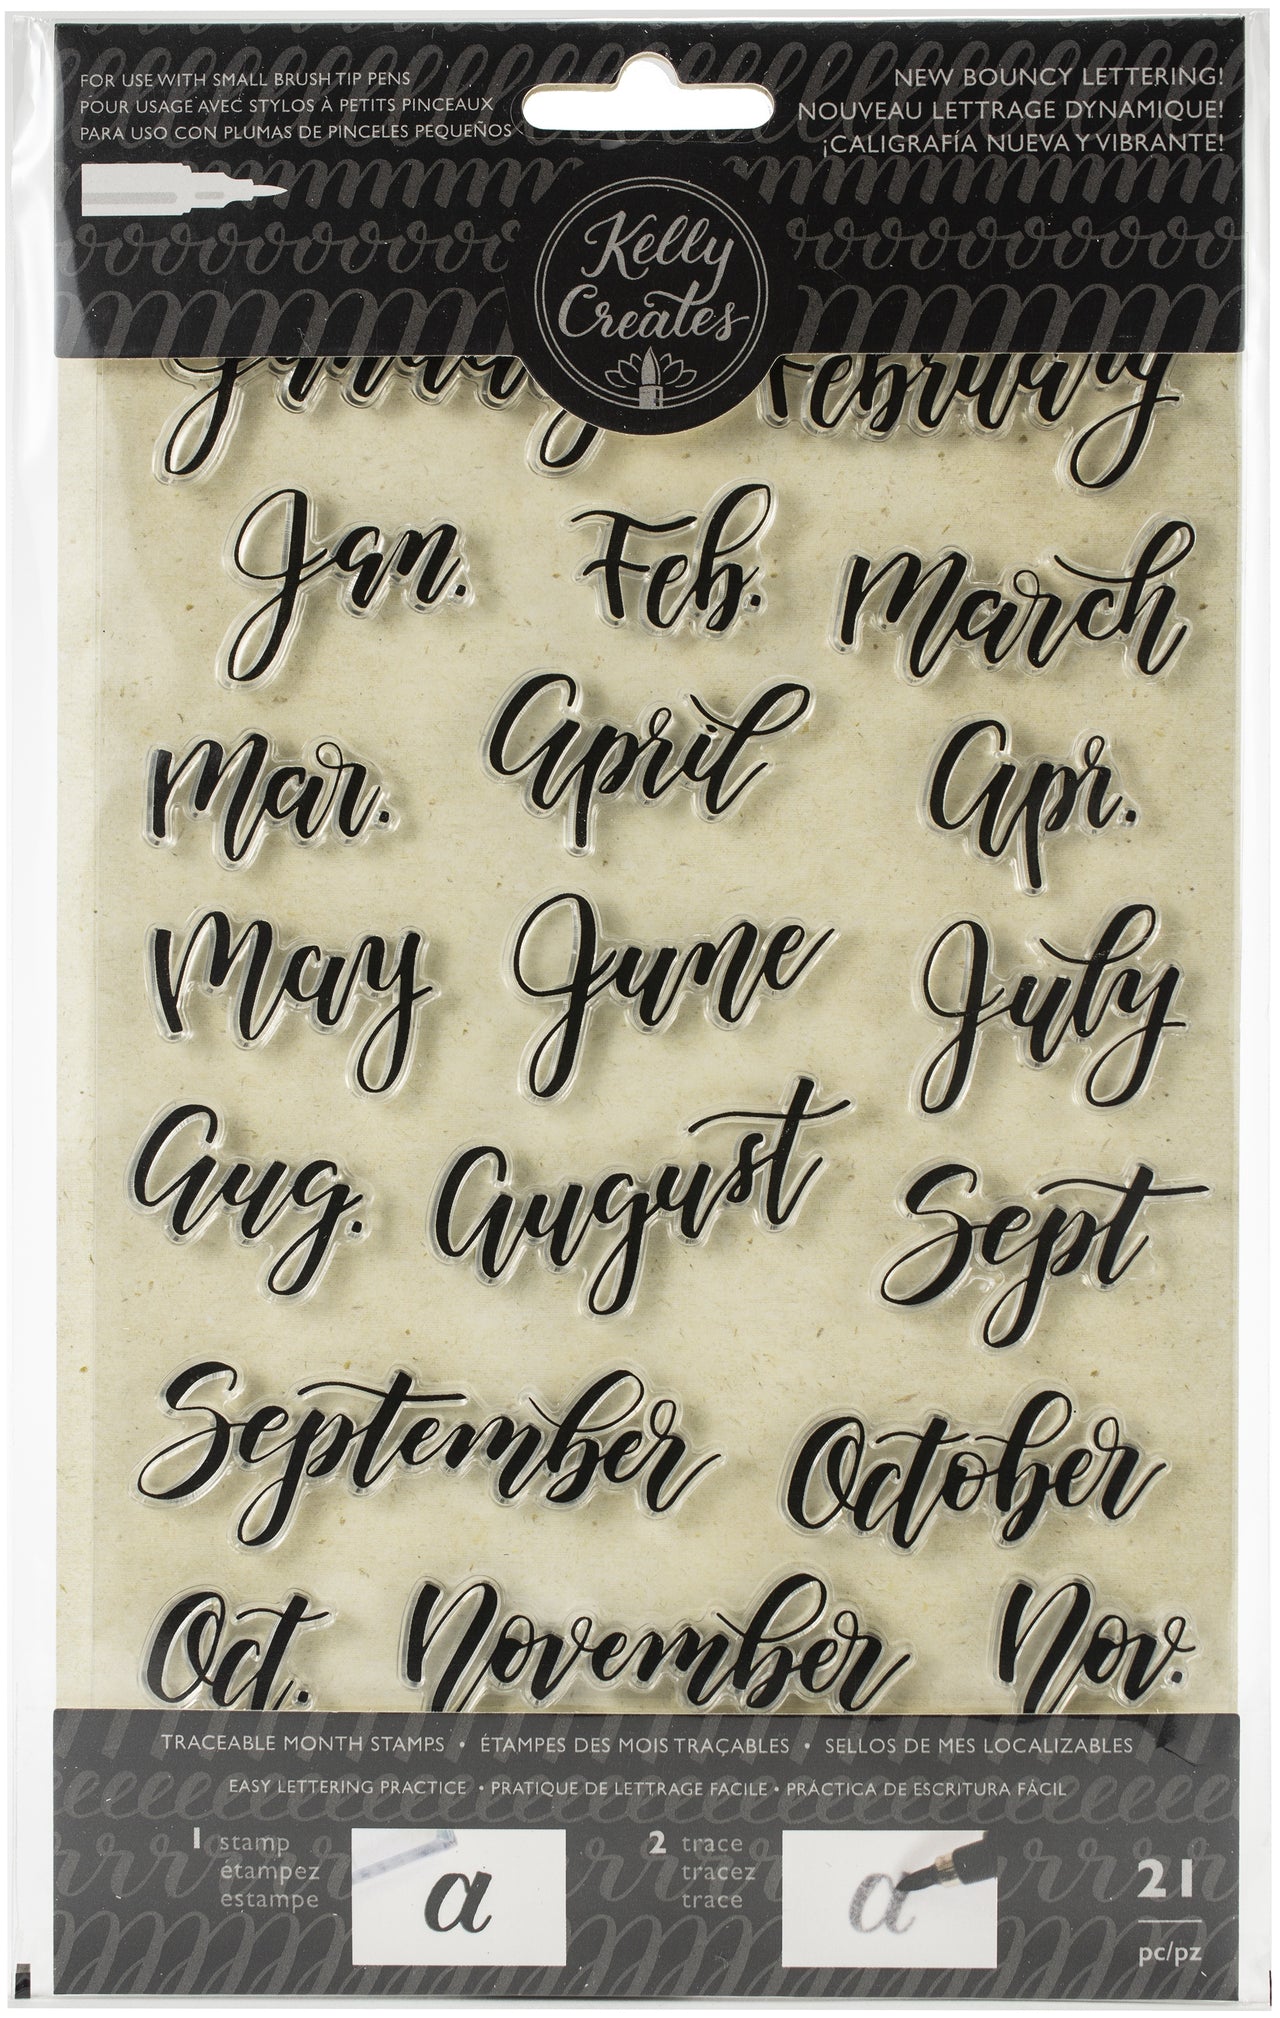 FOR USE WITH SMALL BRUSH TIP PENS
POUR USAGE AVEC STYLOS À PETITS PINCEAUX
PARA USO CON PLUMAS DE PINCELES PEQUEÑOS
NEW BOUNCY LETTERING!
NOUVEAU LETTRAGE DYNAMIQUE!
¡CALIGRAFÍA NUEVA Y VIBRANTE!
Kelly
Creates
January February
Jan. Feb. March
Mar. April Apr.
May June July
Aug. August Sept
September October
Oct. November Nov.
TRACEABLE MONTH STAMPS • ÉTAMPES DES MOIS TRAÇABLES • SELLOS DE MES LOCALIZABLES
EASY LETTERING PRACTICE • PRATIQUE DE LETTRAGE FACILE • PRÁCTICA DE ESCRITURA FÁCIL
1 stamp
étampez
estampe
a
2 trace
tracez
trace
a
21
pc/pz